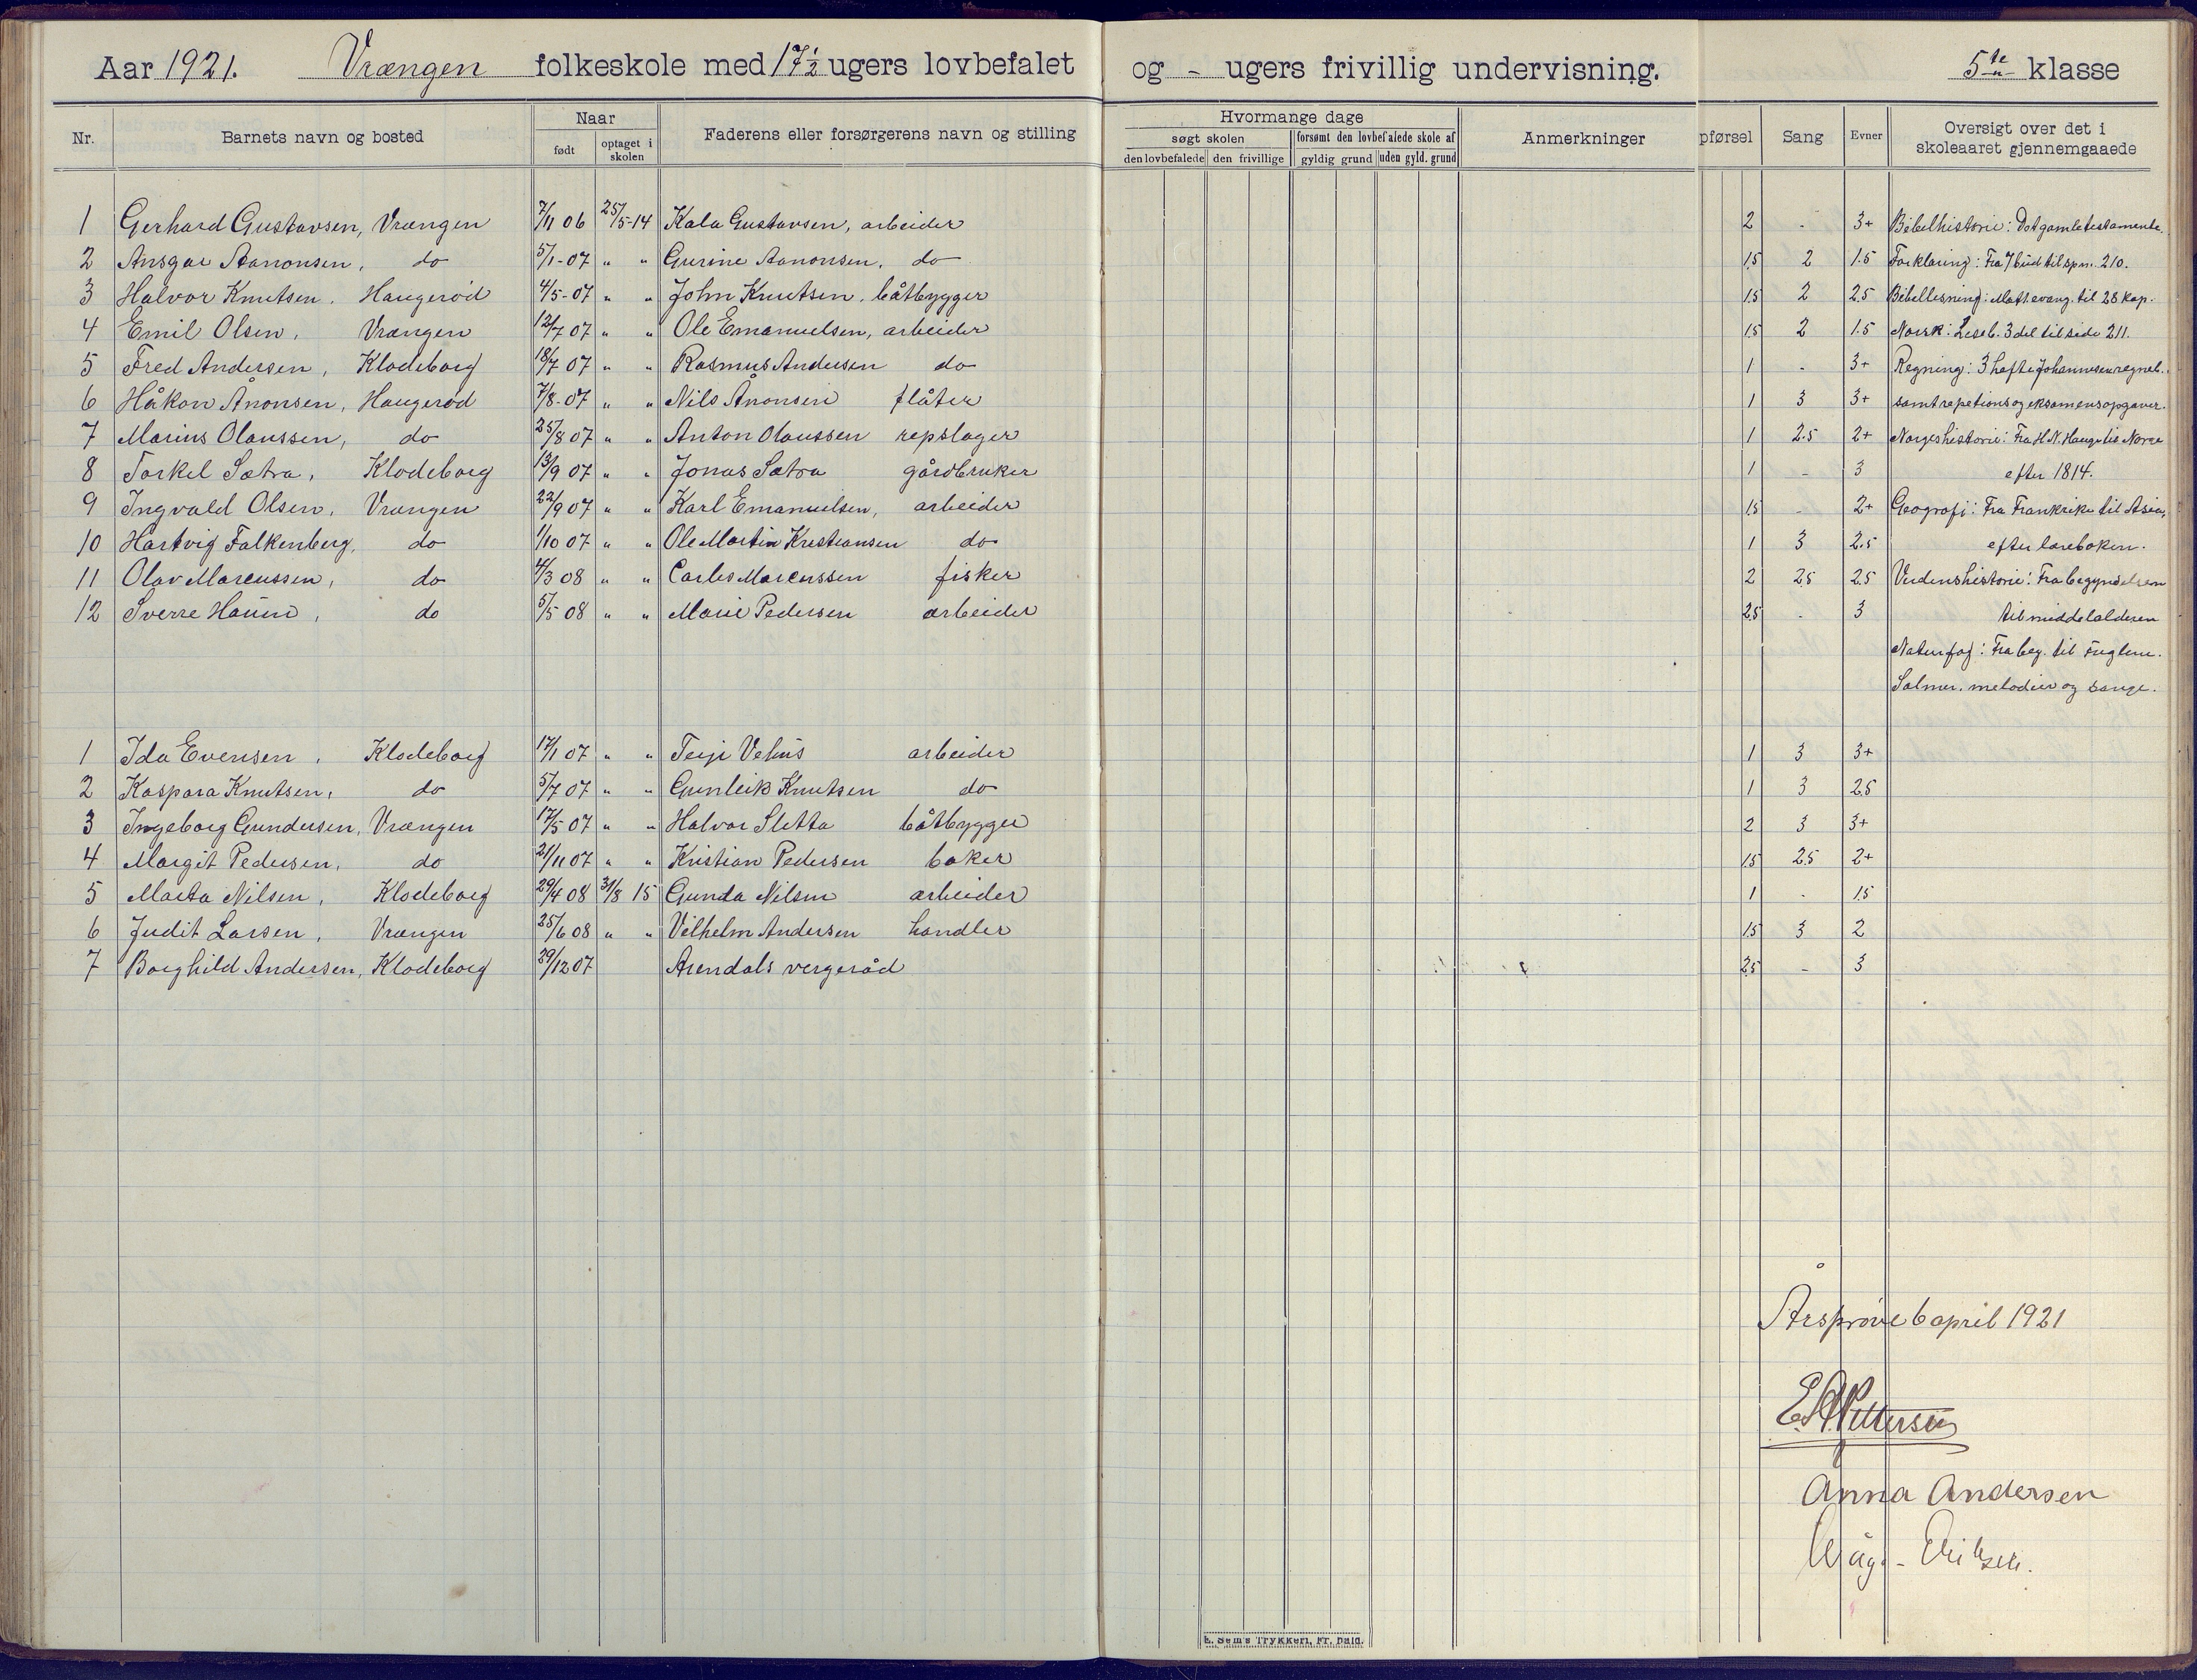 Aar 1921. Vrængen folkeskole med 17½ ugers lovbefalet og - ugers frivillig undervisning. 5te klasse
Nr. Barnets navn og bosted Naar født optaget i skolen Faderens eller forsørgerens navn og stilling Hvormange dage søgt skolen den lovbefalede den frivillige forsømt den lovbefalede skole af gyldig grund uden gyld. grund Anmerkninger pførsel Sang Evner Oversigt over det i skoleaaret gjennemgaaede
1 Gerhard Gustavsen, Vrængen 7/11 06 25/5-14 Kala Gustavsen, arbeider 2 - 3+ Bibelhistorie: Det gamle testamente.
2 Ansgar Aanonsen, do 5/1-07 " " Gurine Aanonsen, do 1.5 2 1.5 Forklaring: Fra 7 bud til spm. 210.
3 Halvor Knutsen, Haugerød 4/5-07 " " John Knutsen, båtbygger 1.5 2 2.5 Bibellesning: Matt. evang. til 28 kap.
4 Emil Olsen, Vrængen 12/7 07 " " Ole Emanuelsen, arbeider 1.5 2 1.5 Norsk: Leseb. 3 del til side 211.
5 Fred Andersen, Klodeborg 18/7 07 " " Rasmus Andersen do 1 - 3+ Regning: 3 hefte Johannesen regneb.
6 Håkon Ånonsen, Haugerød 7/8-07 " " Nils Ånonsen flåter 1 3 3+ samt repetions og eksamensopgaver.
7 Marius Olaussen, do 25/8 07 " " Anton Olaussen repslager 1 2.5 2+ Norgeshistorie: Fra H. N. Hauge til Norge
8 Torkel Sætra, Klodeborg 13/9 07 " " Jonas Sætra gårdbruker 1 - 3 efter 1814.
9 Ingvald Olsen, Vrængen 22/9 07 " " Karl Emanuelsen, arbeider 1.5 - 2+ Geografi: Fra Frankrike til Asia,
10 Hartvig Falkenberg, do 1/10 07 " " Ole Martin Kristiansen do 1 3 2.5 efter læreboken.
11 Olav Marcussen, do 4/3 08 " " Carles Marcussen fisker 2 2.5 2.5 Verdenshistorie: Fra begyndelsen
12 Sverre Haum, do 5/5 08 " " Marie Pedersen arbeider 2.5 - 3 til middelalderen
Naturfag: Fra beg. til Fuglene.
Salmer, melodier og sange.
1 Ida Evensen, Klodeborg 17/1 07 " " Teije Vehus arbeider 1 3 3+
2 Kaspara Knutsen, do 5/7 07 " " Gunleik Knutsen do 1 3 2.5
3 Ingeborg Gundersen, Vrængen 17/5 07 " " Halvor Sletta båtbygger 2 3 3+
4 Margit Pedersen, do 21/11 07 " " Kristian Pedersen baker 1.5 2.5 2+
5 Marta Nilsen, Klodeborg 29/4 08 31/8 15 Gunda Nilsen arbeider 1 - 1.5
6 Judit Larsen, Vrængen 25/6 08 " " Vilhelm Andersen handler 1.5 3 2
7 Borghild Andersen, Klodeborg 29/12 07 Arendals vergeråd 2.5 - 3
Årsprøve 6 april 1921
Pettersen
Anna Andersen
Eriksen.
E. Sem's Trykkeri, Fr. hald.